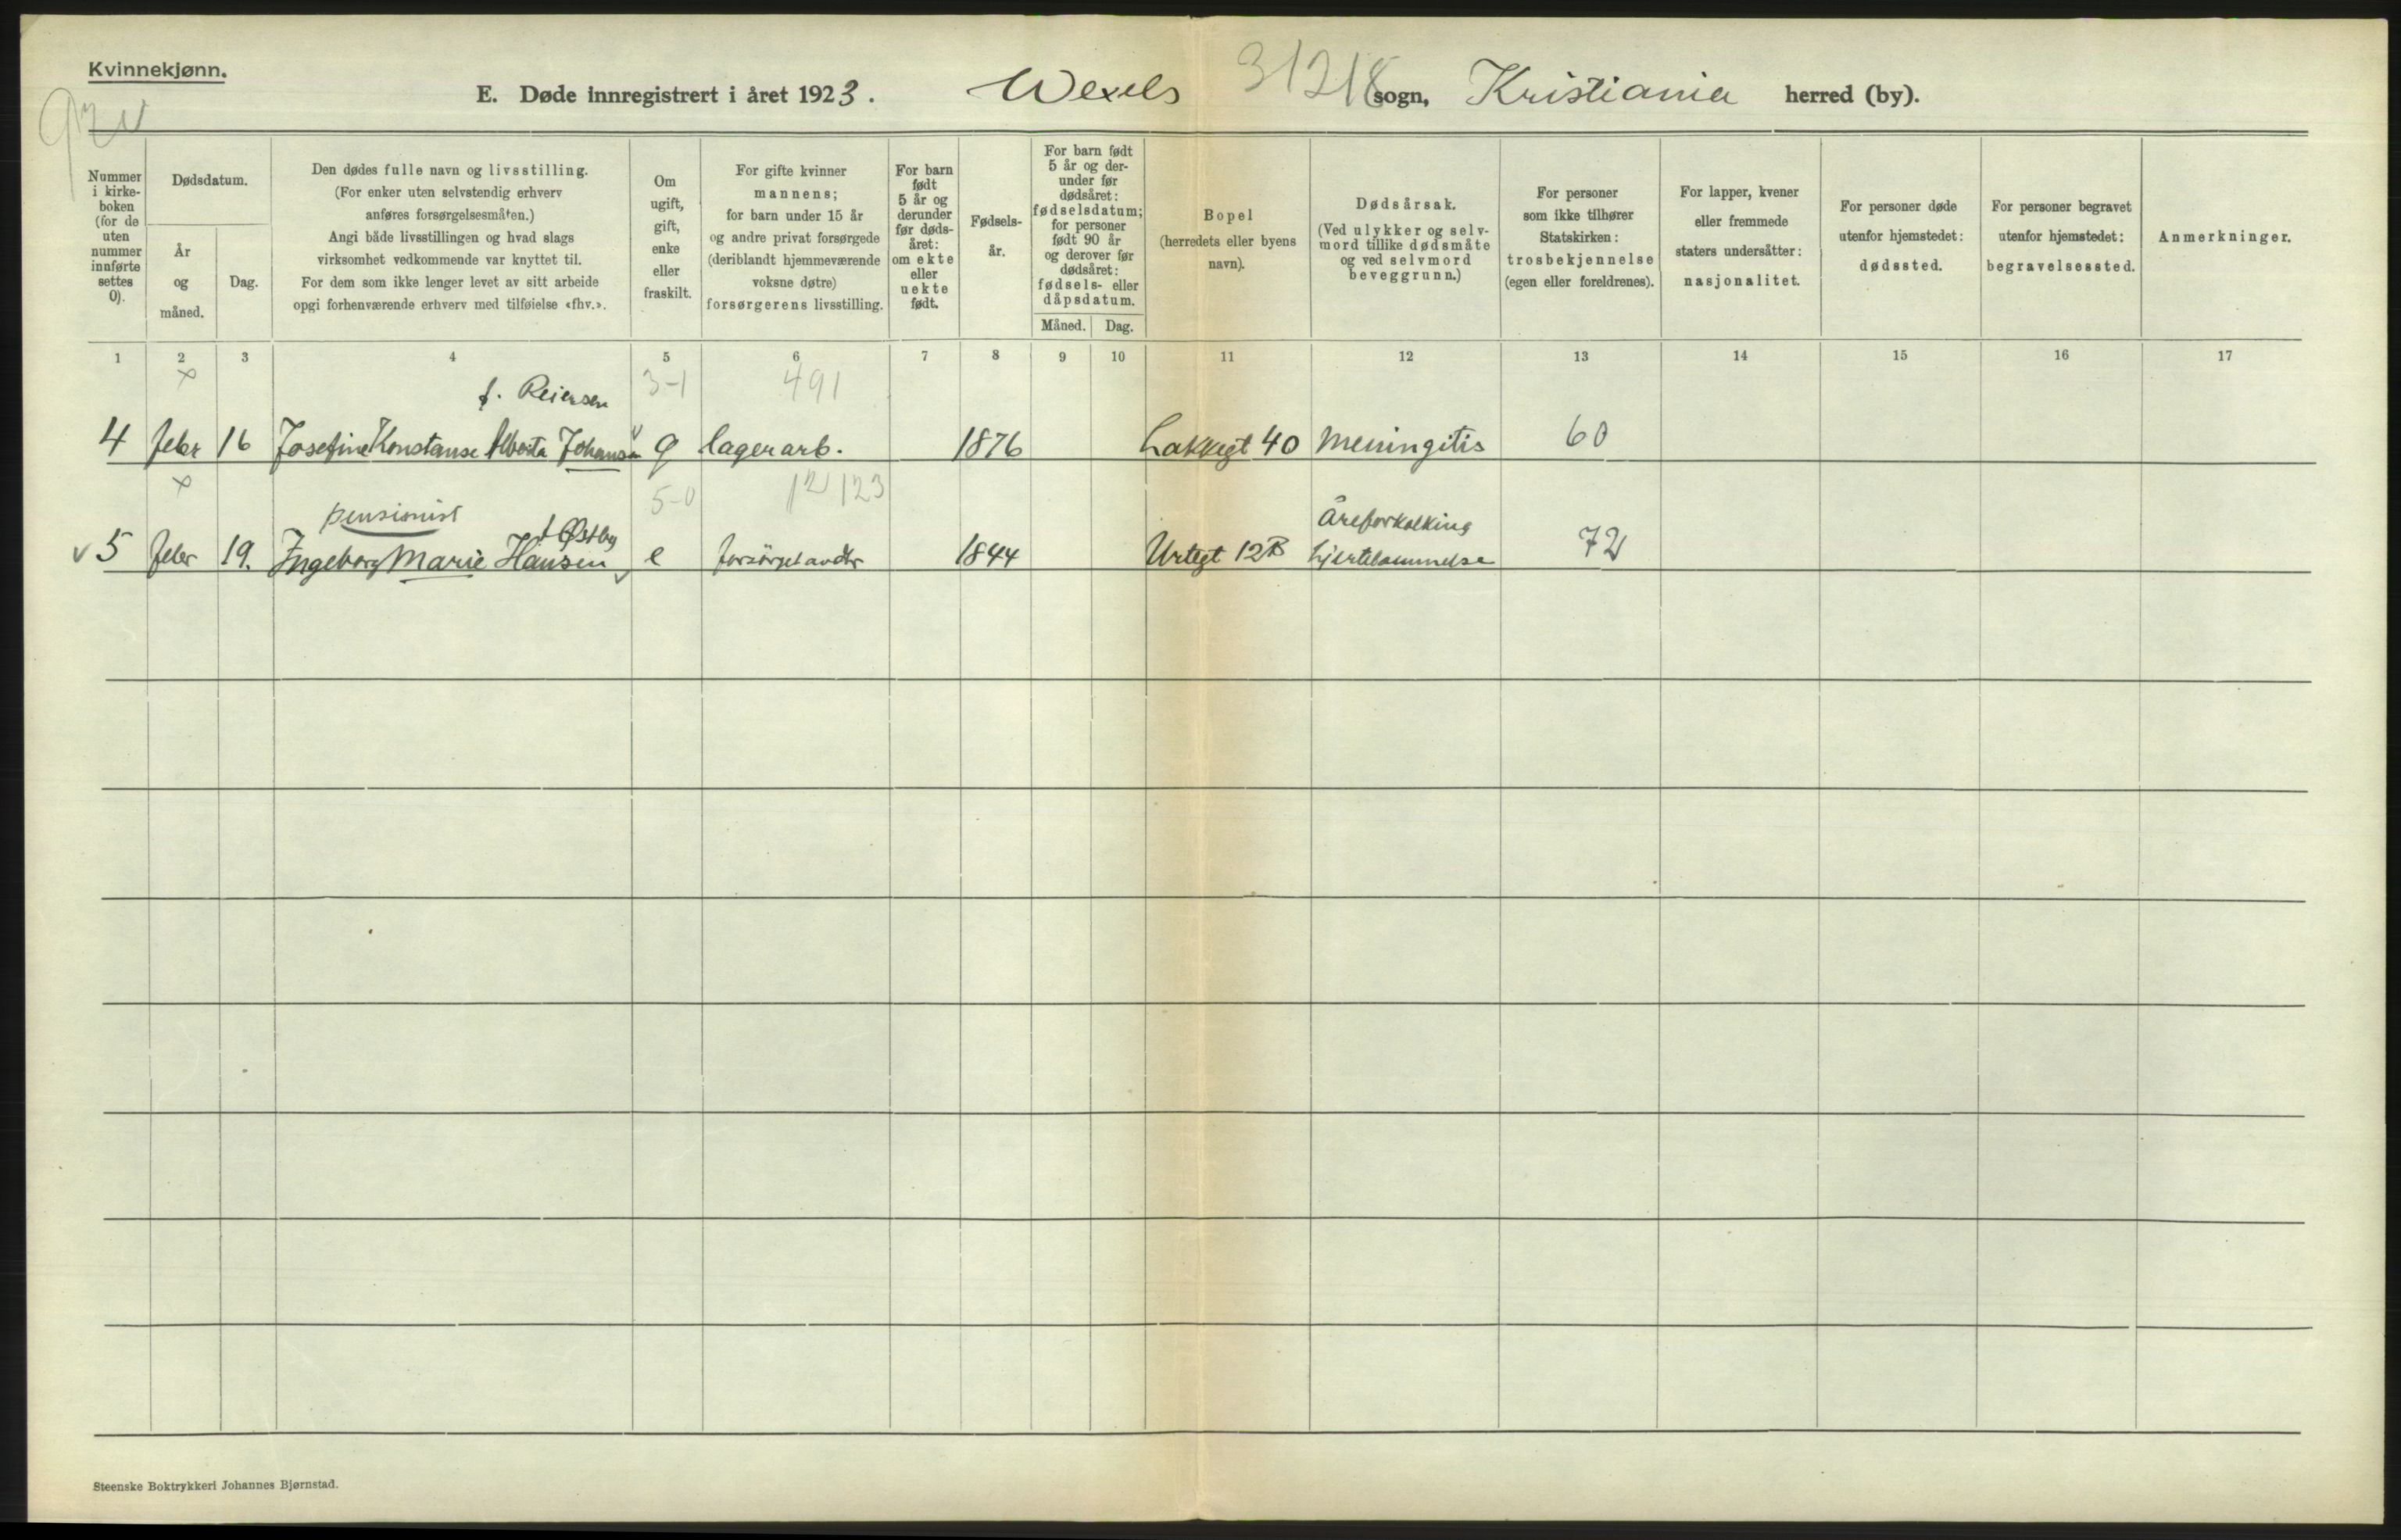 Kvinnekjønn.
E. Døde innregistrert i året 1923. Wexels sogn, Kristiania herred (by).
31218
Nummer i kirke- boken (for de uten nummer innførte settes 0).
Dødsdatum.
År og måned.
Dag.
Den dødes fulle navn og livsstilling.
(For enker uten selvstendig erhverv
anføres forsørgelsesmåten.)
Angi både livsstillingen og hvad slags
virksomhet vedkommende var knyttet til.
For dem som ikke lenger levet av sitt arbeide
opgi forhenværende erhverv med tilføielse «fhv.».
Om ugift, gift, enke eller fraskilt.
For gifte kvinner
mannens;
for barn under 15 år
og andre privat forsørgede
(deriblandt hjemmeværende
voksne døtre)
forsørgerens livsstilling.
For barn født 5 år og derunder før døds- året: om ekte eller uekte født.
Fødsels- år.
For barn født
5 år og der-
under før
dødsåret:
fødselsdatum;
for personer
født 90 år
og derover før
dødsåret:
fødsels- eller
dåpsdatum.
Måned. Dag.
Bopel
(herredets eller byens
navn).
Dødsårsak.
(Ved ulykker og selv-
mord tillike dødsmåte
og ved selvmord
beveggrunn.)
For personer
som ikke tilhører
Statskirken:
trosbekjennelse
(egen eller foreldrenes).
For lapper, kvener
eller fremmede
staters undersåtter:
nasjonalitet.
For personer døde
utenfor hjemstedet:
dødssted.
For personer begravet
utenfor hjemstedet:
begravelsessted.
Anmerkninger.
1 2 3 4 5 6 7 8 9 10 11 12 13 14 15 16 17
f. Reiersen 3-1 491
4 febr 16 Josefine Konstanse Alberta Johansen g lagerarb. 1876 Lakkegt 40 Meningitis 60
pensionist f Østby 5-0 12 123 Åreforkalking
5 febr 19. Ingeborg Marie Hansen e forsörget av dtr 1844 Urtegt 12B hjertelammelse 72
Steenske Boktrykkeri Johannes Bjørnstad.